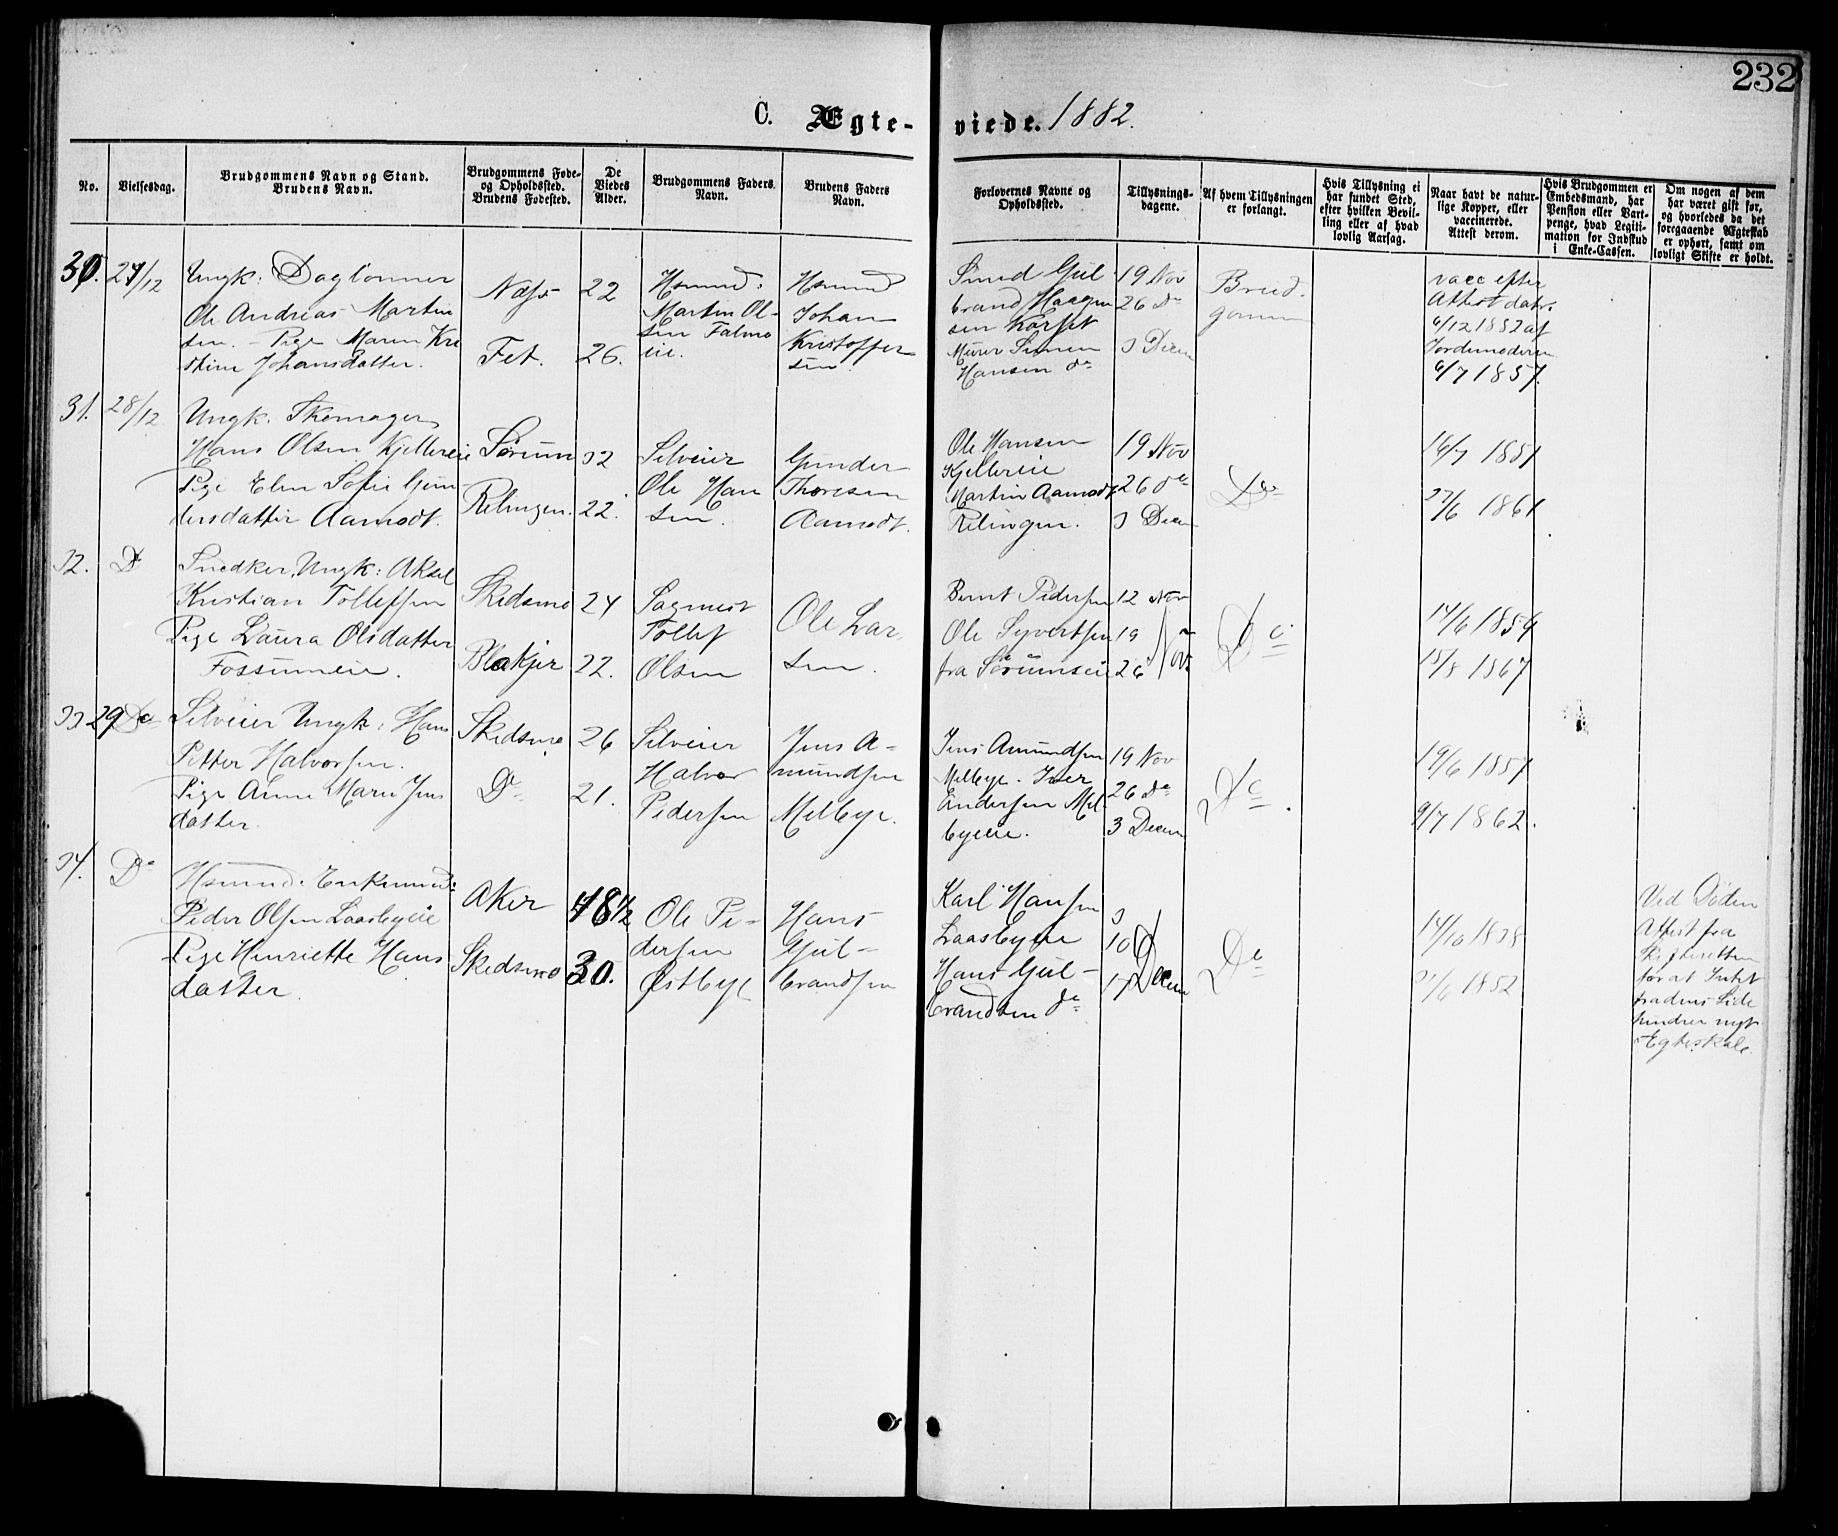 232
C. Ægte-
viede. 1882.
No.
Vielsesdag.
Brudgommens Navn og Stand.
Brudens Navn.
Brudgommens Føde-
og Opholdssted.
Brudens Fødested.
De
Viedes
Alder.
Brudgommens Faders
Navn.
Brudens Faders
Navn.
Forlovernes Navne og
Opholdssted.
Tillysnings-
dagene.
Af hvem Tillysningen
er forlangt.
Hvis Tillysning ei
har fundet Sted,
efter hvilken Bevil-
ling eller af hvad
lovlig Aarsag.
Naar havt de natur-
lige Kopper, eller
vaccinerede.
Attest derom.
Hvis Brudgommen er
Embedsmand, har
Pension eller Vart-
penge, hvad Legiti-
mation for Indskud
i Enke-Cassen.
Om nogen af dem
har været gift før,
og hvorledes da det
foregaaende Ægteskab
er ophørt, samt om
lovligt Skifte er holdt.
30. 27/12
Ungk: Daglønner
Ole Andreas Martin
sen. - Pige Maren Kri
stine Johansdatter.
Næs
Fet.
22
26.
Hsmnd:
Martin Ol-
sen Falmo
eie.
Hsmnd
Johan
Kristoffer
sen.
Smed Gul
brand Haagen
sen Korset
Murer Simen
Hansen do
19 Nov
26 Do
3 Decem
Brud-
gommen
vacc efter
Attest dat.
6/12 1852 af
Jordemoderen
6/7 1857.
31. 28/12
Ungk. Skomager
Hans Olsen Kjellereie
Pige Elen Sofie Gun
dersdatter Aamodt.
Sørum
Relingen.
32
22.
Selveier
Ole Han
sen.
Gunder
Thoresen
Aamodt.
Ole Hansen
Kjellereie
Martin Aamodt
Relingen.
19 Nov
26 do
3 Decem
Do
16/7 1851
27/6 1861
32. Do
Snedker, Ungk: Aksel
Kristian Tollefsen
Pige Laura Olsdatter
Fossumeie.
Skedsmo
Blakjer
24
22.
Sagmest
Tollef
Olsen
Ole Lar
sen.
Bernt Pedersen
Ole Syvertsen
fra Sørumseie
12 Nov
19
26 Nov
Do
14/6 1859
15/8 1867
33 29 Do
Selveier Ungk: Hans
Petter Halvorsen.
Pige Anne Marie Jens
datter.
Skedsmo
Do
26
21.
Selveier
Halvor
Pedersen
Jens A-
mundsen
Melbye.
Jens Amundsen
Melbye. Iver
Andersen Mel
byeeie.
19 Nov
26 Do
3 Decem
Do
19/6 1857
9/7 1862.
34. Do
Hsmnd. Enkemand:
Peder Olsen Laasbyeie
Pige Henriette Hans
datter.
Aker
Skedsmo
48 1/2
30.
Ole Pe-
dersen
Østbye
Hans
Gul-
brandsen
Karl Hansen
Laasbyeie
Hans Gul-
brandsen do
3
10
17 Decem
Do
14/10 1838
21/6 1852
Ved Døden
Attest fra
Skifteretten
for at Intet
fra dens Side
hindrer nyt
Egteskab.